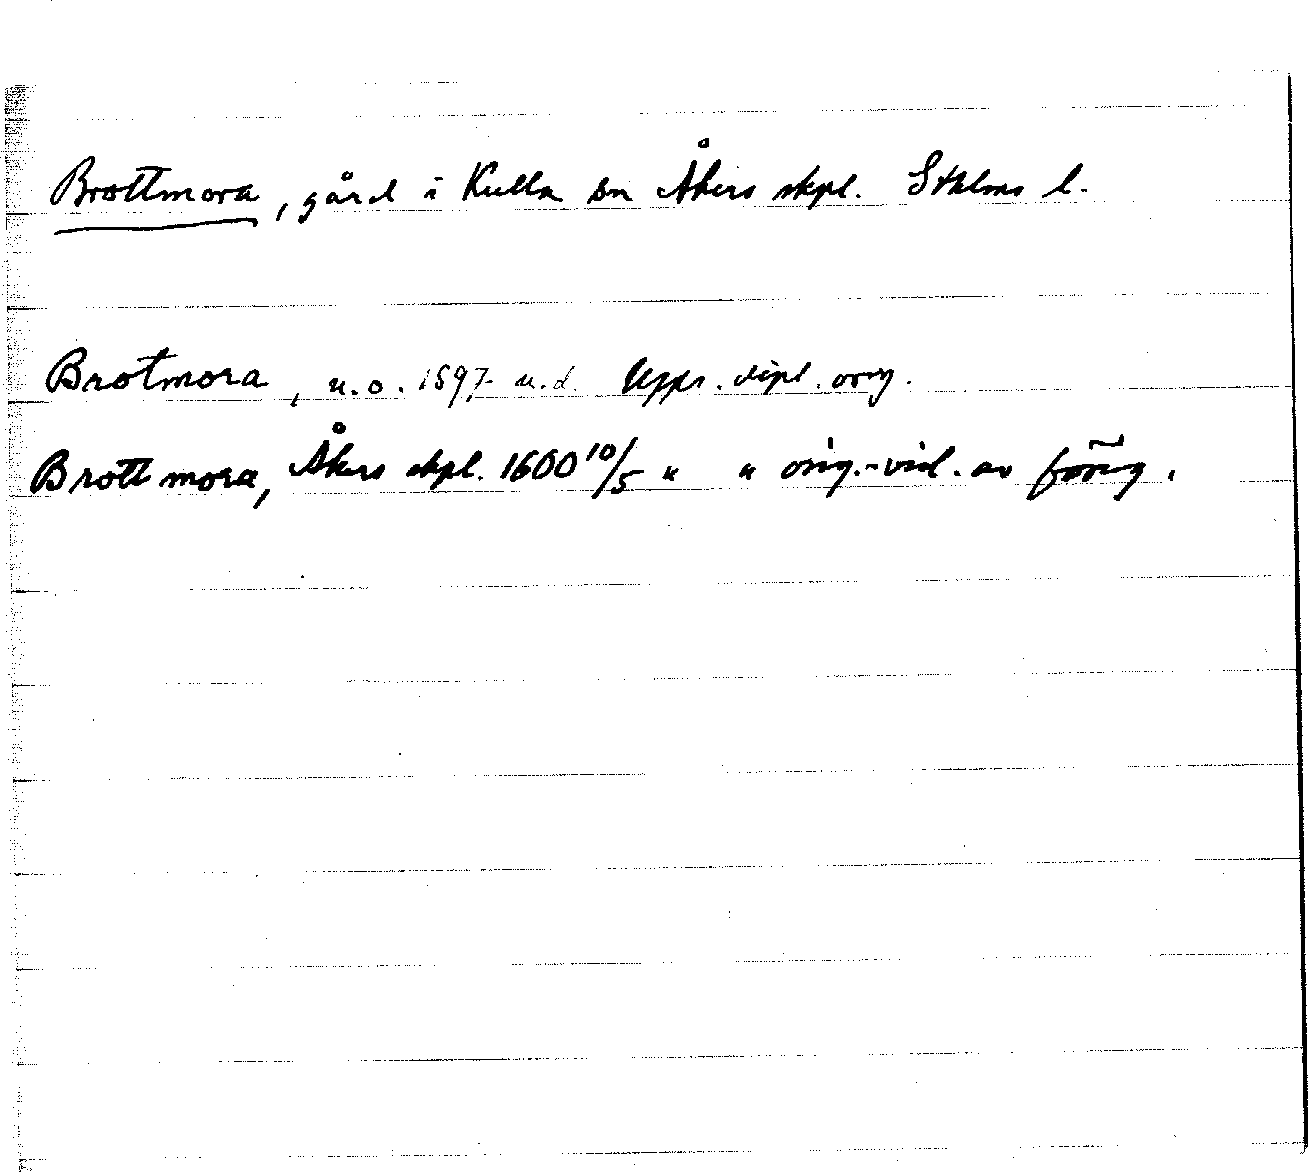 Brottmora, gård i Kulla sn Åkers skpl. Sthlms l.
Brotmora, u.o. 1597 u.d. Upps. dipl. orig.
Brottmora, Åkers skpl. 1600 10/5 " " orig.-vid. av föreg.